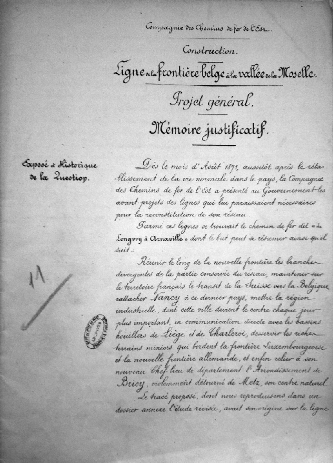 Compagnie des Chemins de fer de l'Est.
Construction.
Ligne de la frontière belge à la vallée de la Moselle.
Projet général.
Mémoire justificatif.
Exposé et Historique
de la Question.
Dès le mois d'Août 1871, aussitôt après le réta-
blissement de la vie normale dans le pays, la Compagnie
des Chemins de fer de l'Est a présenté au Gouvernement les
avant projets des lignes qui lui paraissaient nécessaires
pour la reconstitution de son réseau.
Parmi ces lignes se trouvait le chemin de fer dit « de
Longwy à Arnaville » dont le but peut se résumer ainsi qu'il
suit.
Réunir le long de la nouvelle frontière les branches
divergentes de la partie conservée du réseau, maintenir sur
le territoire français le transit de la Suisse vers la Belgique,
rattacher Nancy à ce dernier pays, mettre la région
industrielle, dont cette ville devient le centre chaque jour
plus important, en communication directe avec les bassins
houillers de Liège et de Charleroi, desservir les riches
terrains miniers qui bordent la frontière Luxembourgeoise
et la nouvelle frontière allemande, et enfin relier à son
nouveau Chef lieu de département l'Arrondissement de
Briey, violemment détourné de Metz, son centre naturel.
Le tracé proposé, dont nous reproduisons dans un
dossier annexe l'étude revisée, avait son origine sur la ligne
11